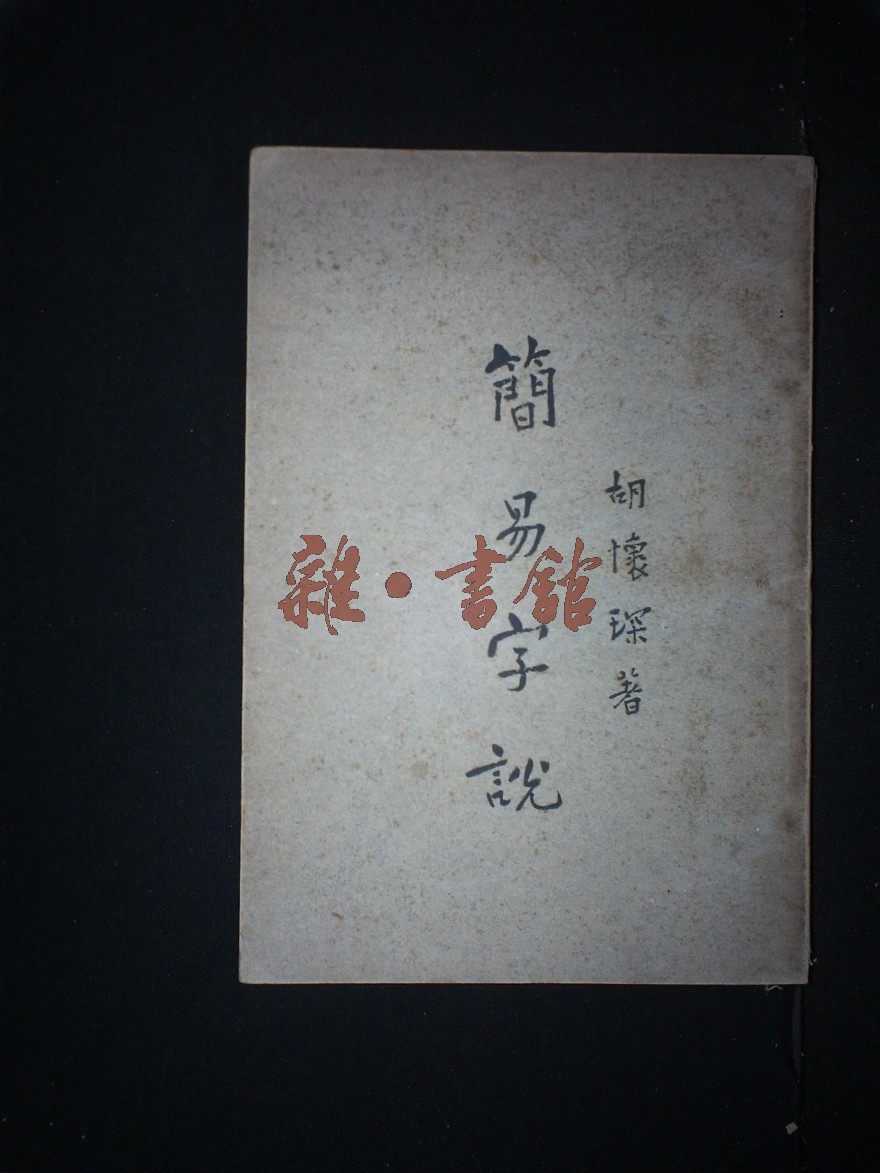 胡懷琛著
簡易字說
雜·書館